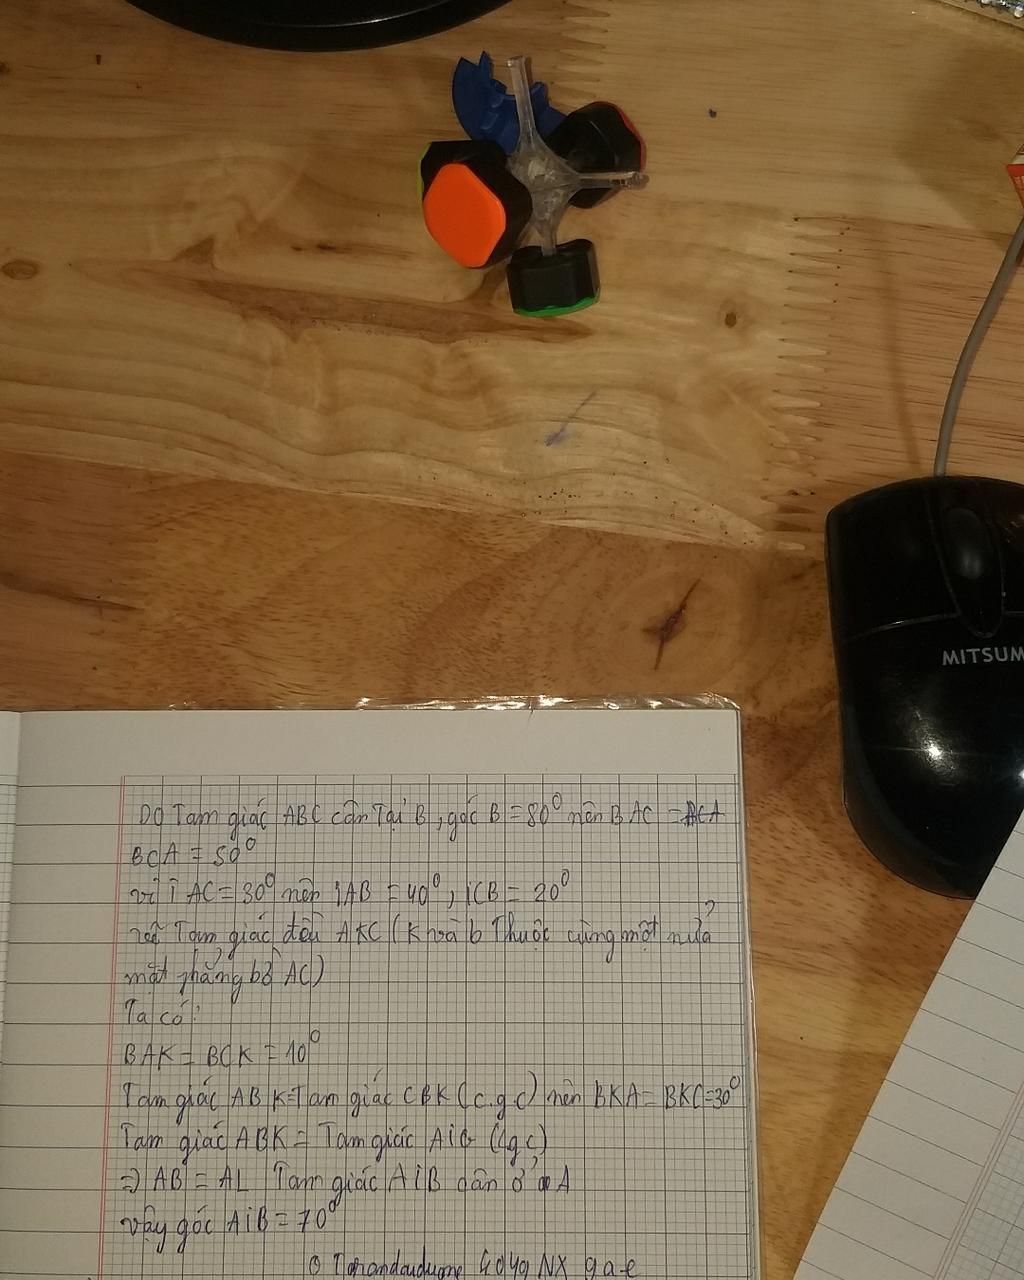 MITSUM
Do Tam giác ABC cân Tại B, góc B = 80⁰ nên BAC = BCA
BCA = 50⁰
vì IAC = 30⁰ nên IAB = 40⁰, ICB = 20⁰
vẽ Tam giác đều AKC (K và b Thuộc cùng một nửa
mặt phẳng bờ AC)
Ta có:
BAK = BCK = 10⁰
Tam giác ABK = Tam giác CBK (c.g.c) nên BKA = BKC = 30⁰
Tam giác ABK = Tam giác AiC (cgc)
⇒ AB = AL Tam giác AiB cân ở A
vậy góc AiB = 70⁰